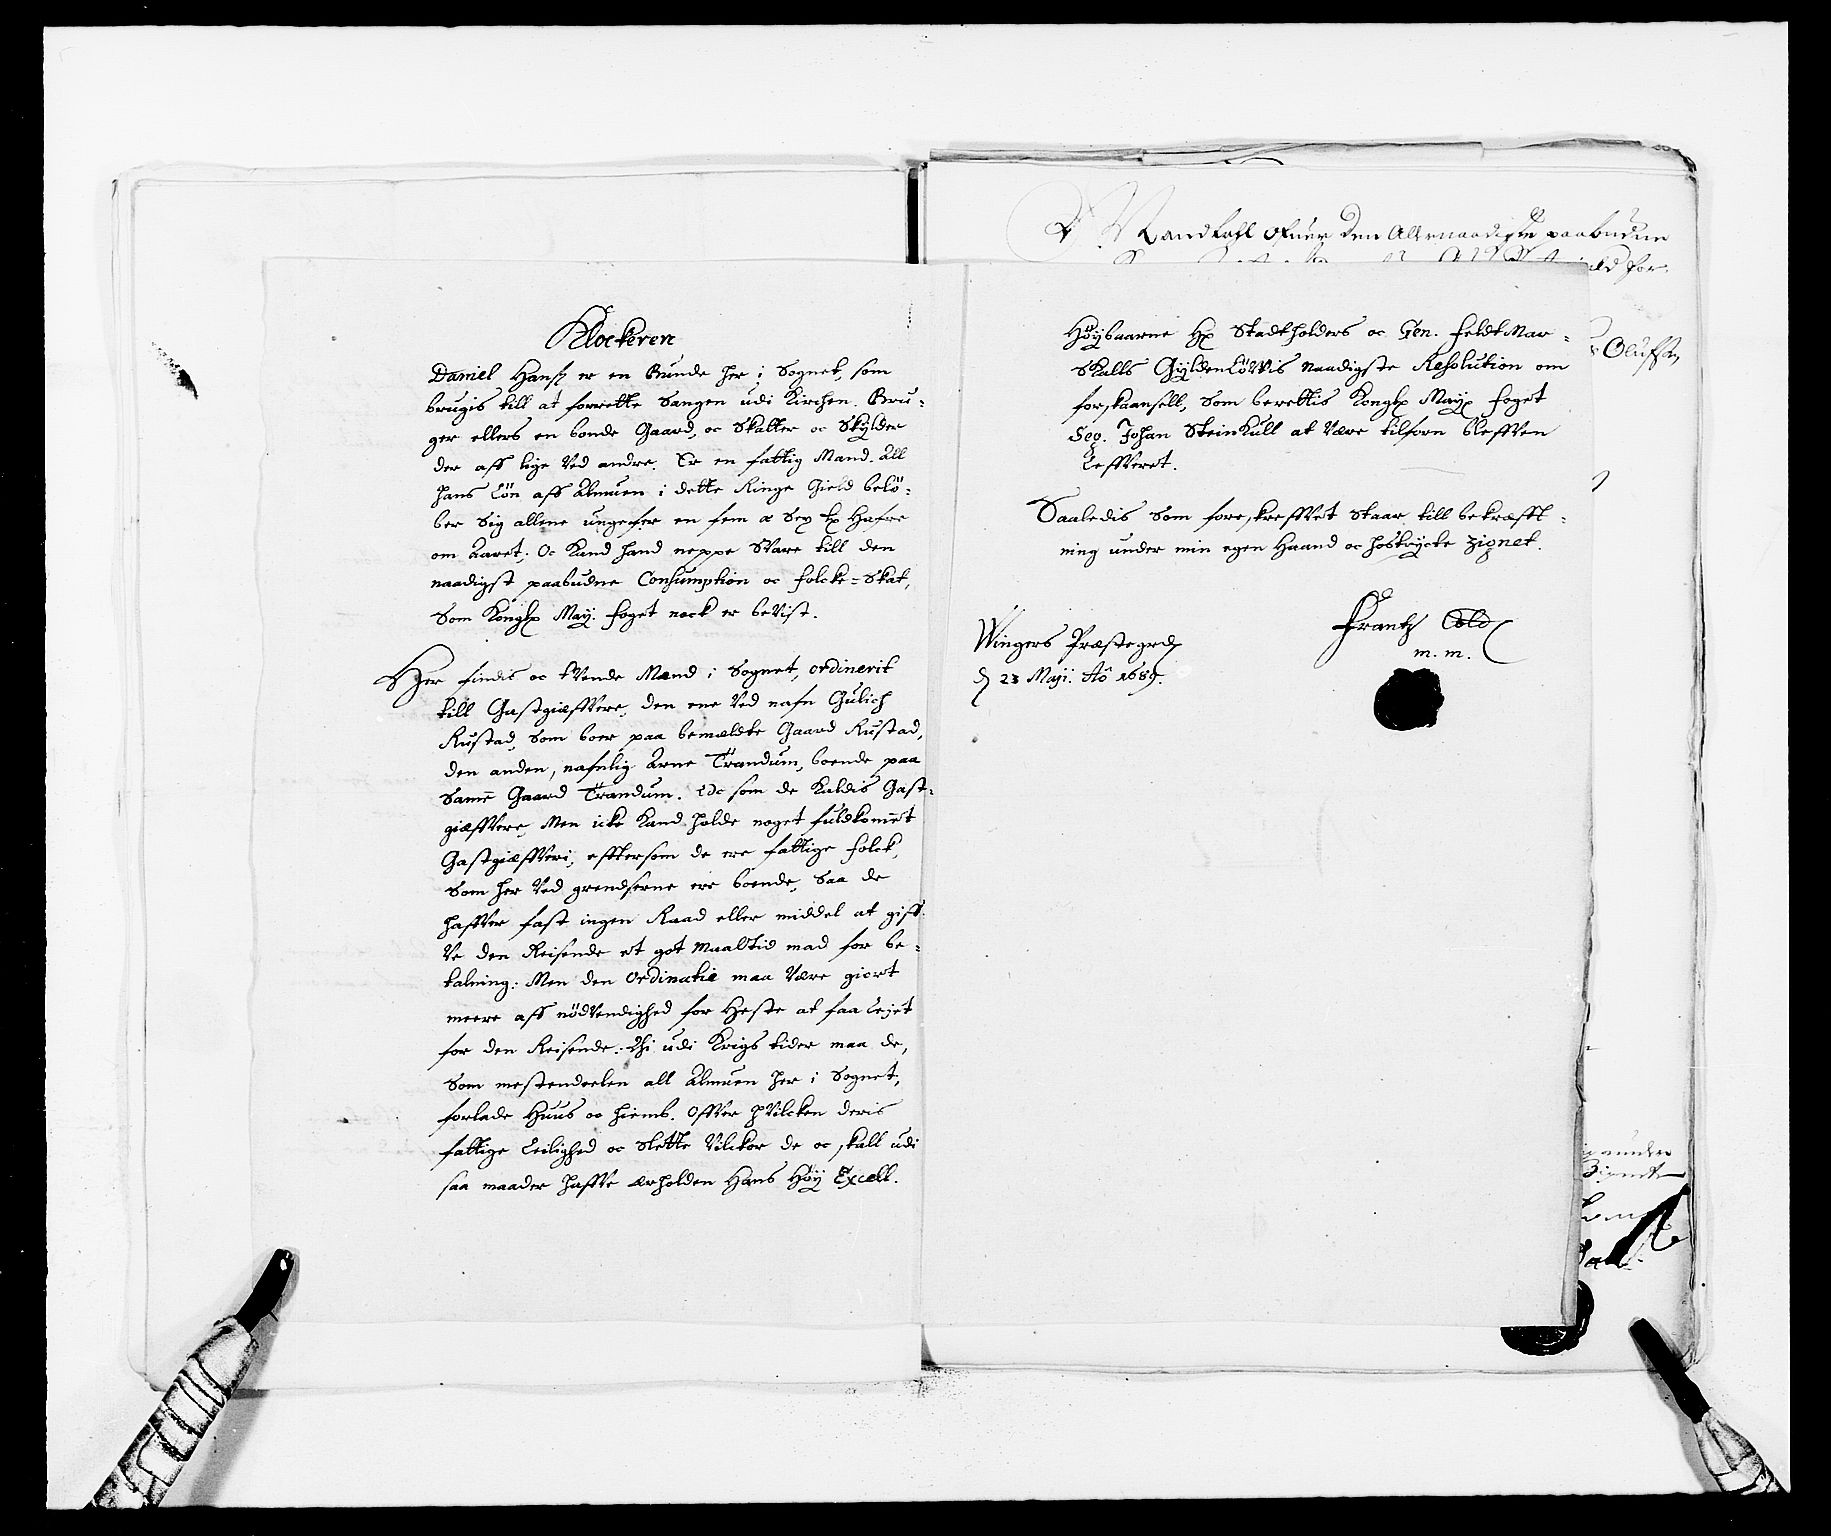 Klockeren
Daniel Hanß er en Bunde her i Sognet, som
brugis till at forrette Sangen udi Kirchen. Bru-
ger ellers en bonde Gaard, oc Skatter oc Skylder
der aff lige Ved andre. Er en fattig Mand. All
hans Lön aff Almuen i dette Ringe Gield belö-
ber Sig allene ungefer en fem a Sex tr Hafre
om Aaret; Oc Kand hand neppe SVare till den
naadigst paabudne Consumption oc folcke-Skat,
Som Kongl May. foget nock er beVist.
Her findis oc tVende Mænd i Sognet, ordinerit
till Gastgiæffvere, den ene Ved nafn Gulich
Rustad, Som boer paa bemældte Gaard Rustad,
den anden, nafnlig Arne Trandum, boende paa
Same Gaard Trandum. som de Kaldis Gast-
giæffvere, Men icke Kand holde noget fuldkomet
Gastgiæffveri; effterсom de ere fattige folck,
Som her Ved grendserne ere boende, Saa de
haffver fast ingen Raad eller middel at giff-
Ve den Reisende et got maaltid mad for be-
talning: Men den Ordinatie maa Være giort
meere aff nödVendighed for Heste at faa Lejet
for den Reisende: Thi udi Krigs tider maa de,
Som mestendeelen all Almuen her i Sognet,
forlade Huus oc hiemb. Offver hVilcken deris
fattige Leilighed oc Slette Vilckor de oc skall udi
saa maader haffve ærholden Hans Höy Excell.
Höybaarne Hr Stadtholders oc Gen. Feldt Mar-
Skalls GyldenLöVis naadigste Resolution om
forskaansell, Som berettis Kongl May foget
Seg. Johan SteinKull at Være tilforn bleffVen
LeffVeret.
Saaledis Som foreskreffVet Staar till bekræfft-
ning under min egen Haand oc hostrycte Zignet.
Wingers Præstegrd
d 23 Maji. Aō 1689.
Frantz Cold
m. m.
Mandtall ofuer Den Allernaadigste paabudne
Oluffsn